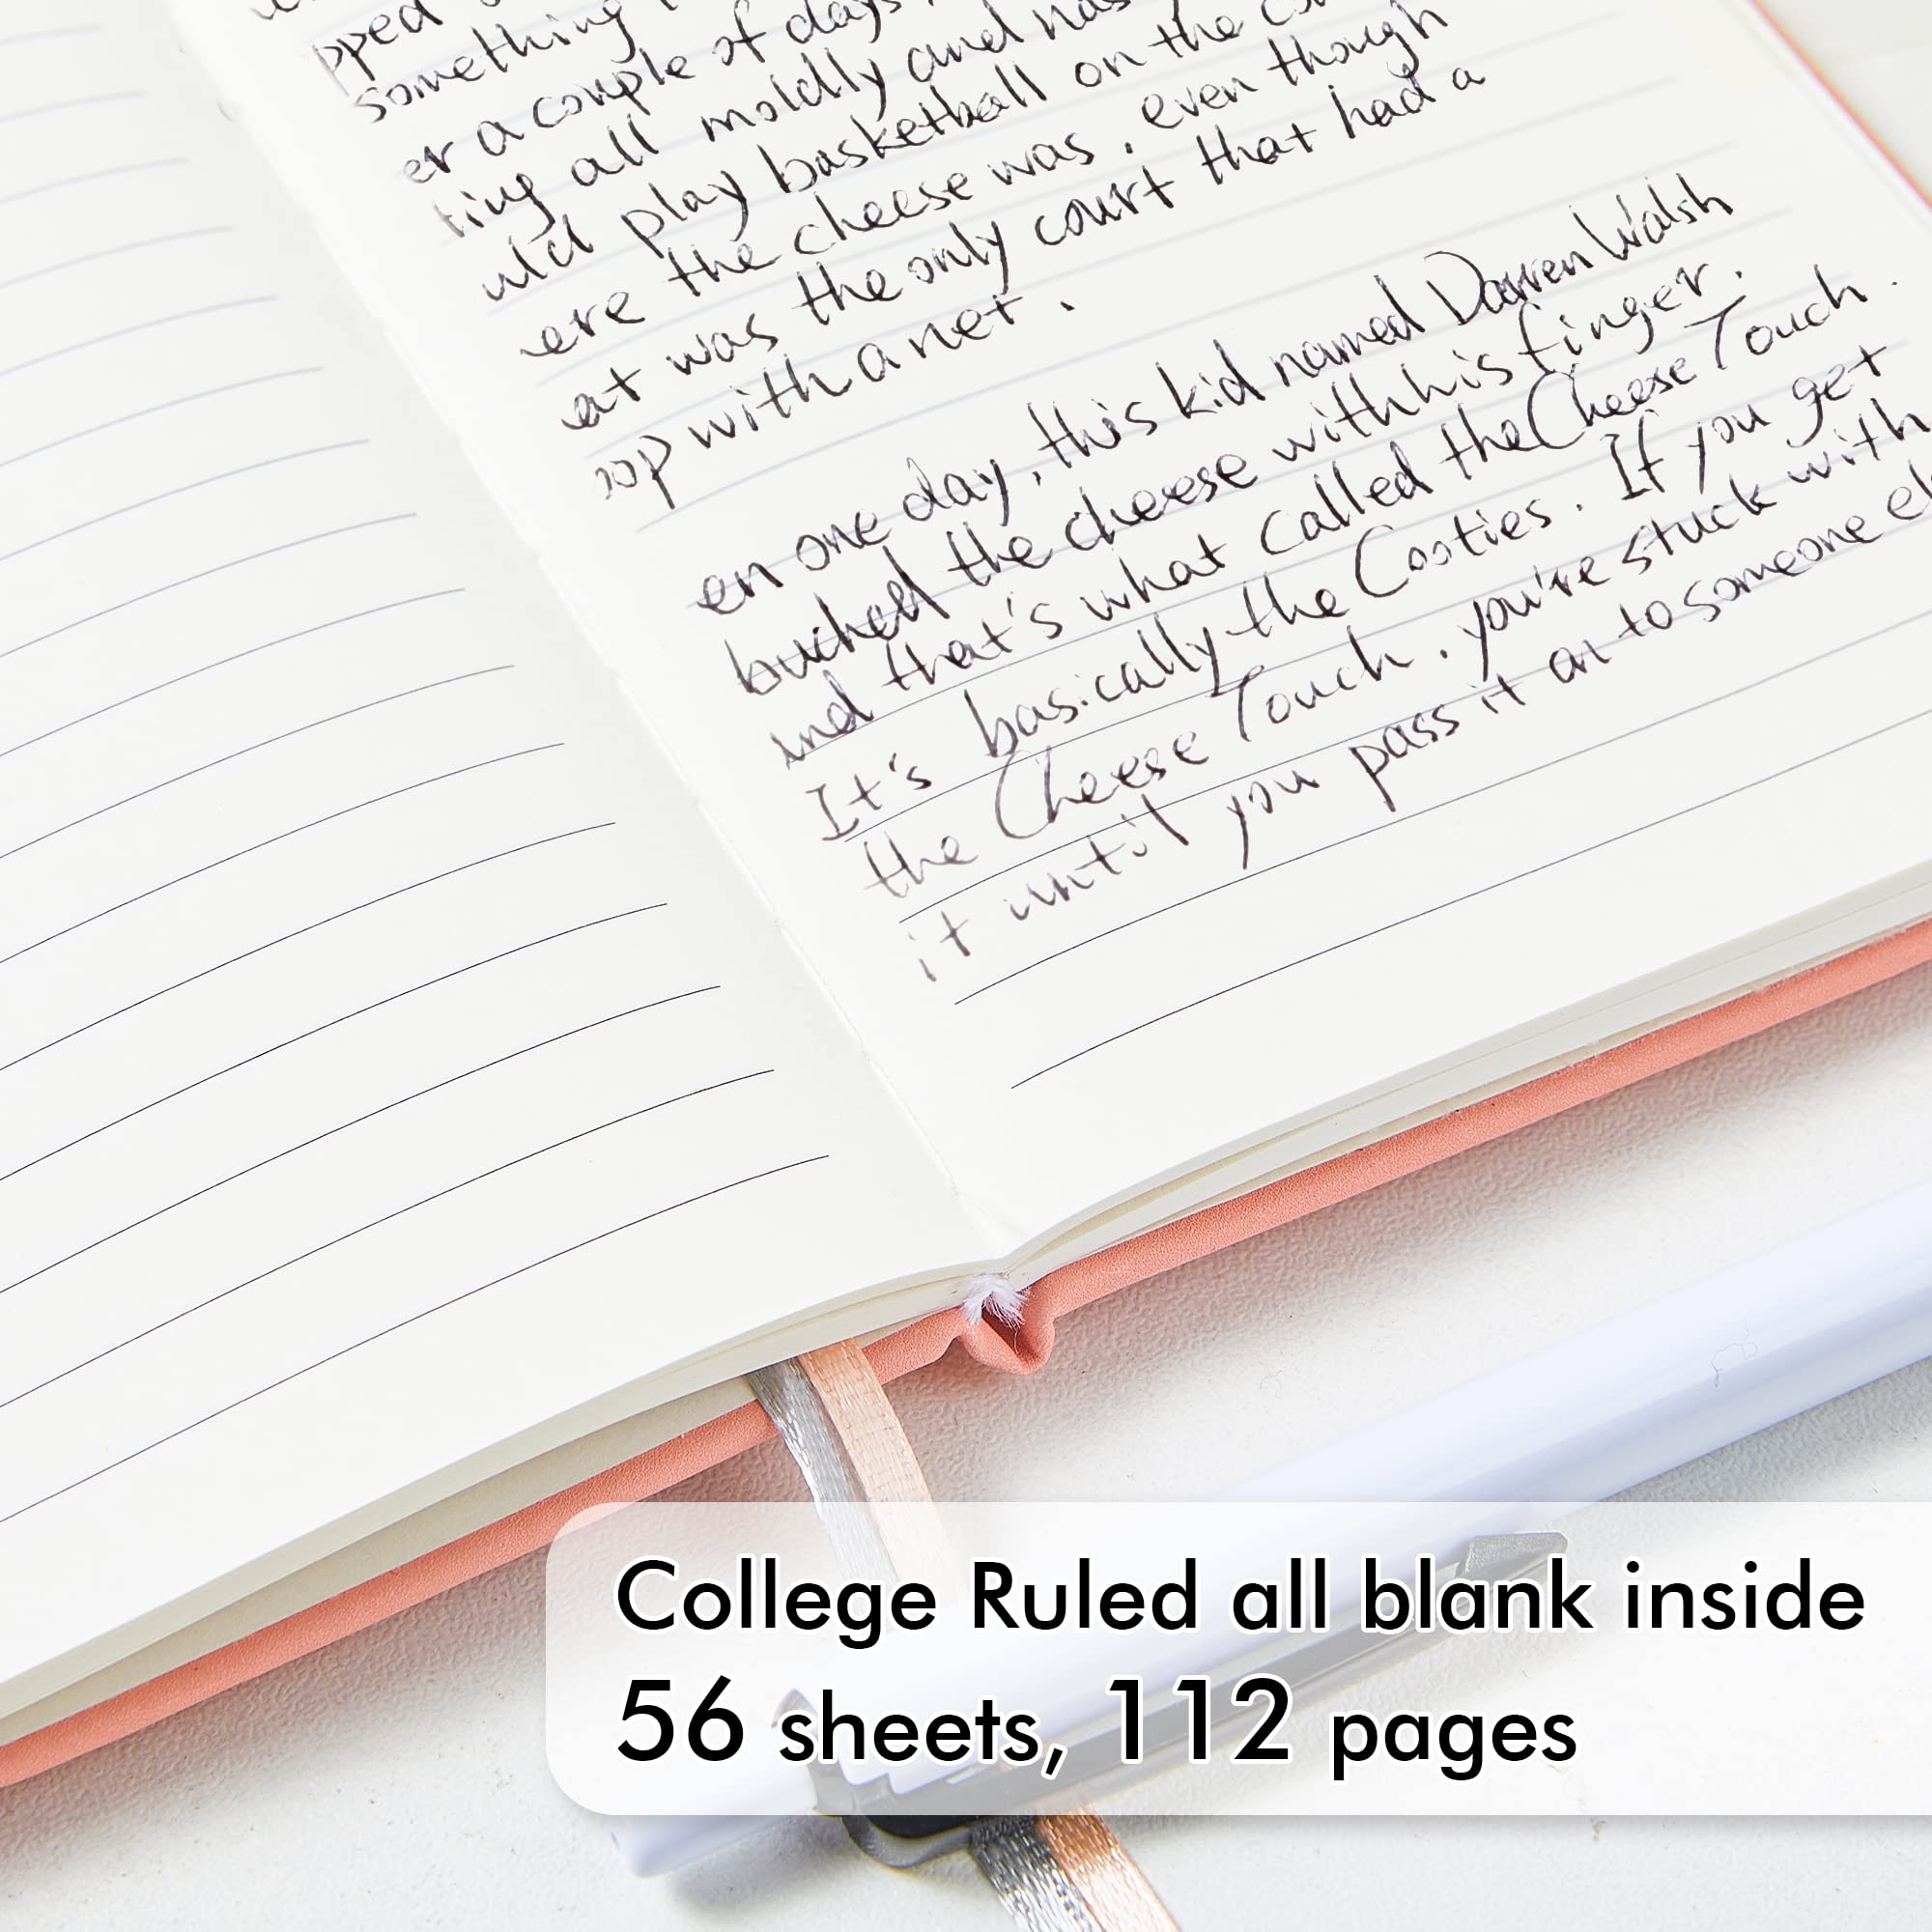 something
er a couple of days
ting all moldly and nas
uld play basketball on the co
ere the cheese was, even though
at was the only court that had a
oop with a net.
en one day, this kid named Darren Walsh
buched the cheese with his finger.
and that's what called the Cheese Touch.
It's basically the Cooties. If you get
the Cheese Touch, you're stuck with
it until you pass it on to someone el
College Ruled all blank inside
56 sheets, 112 pages